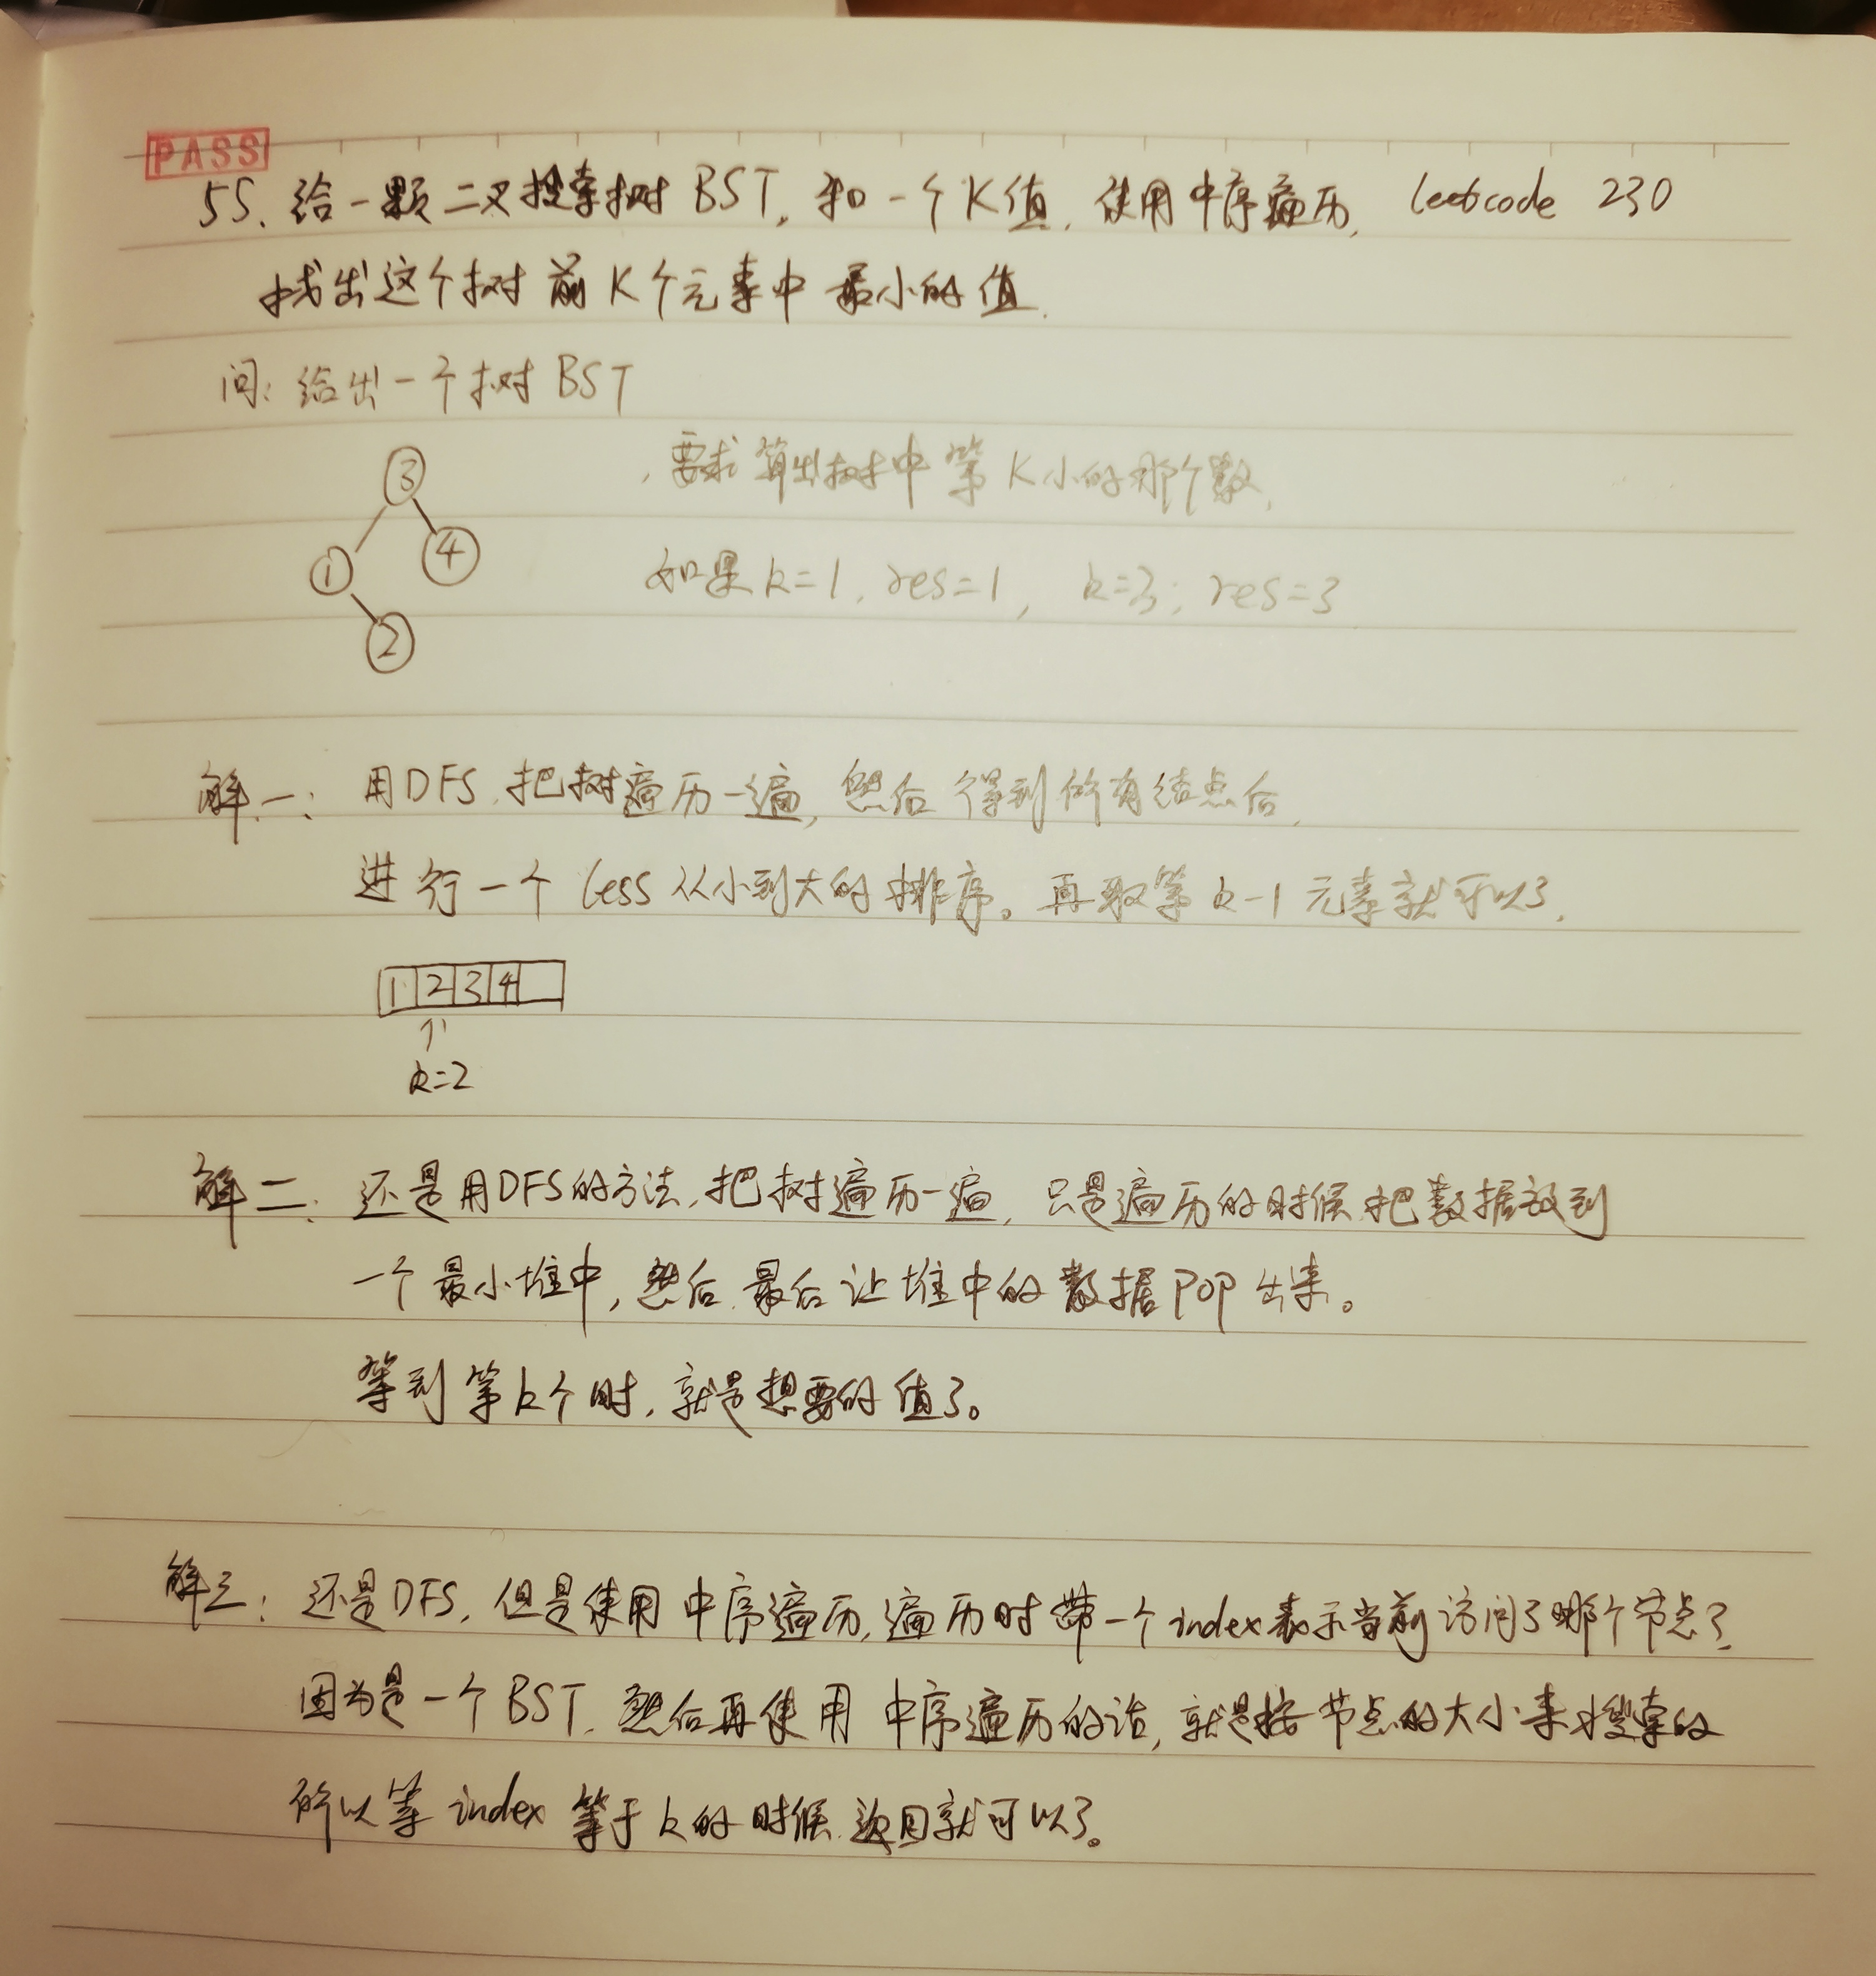 PASS
55. 给一颗二叉搜索树 BST, 和一个K值, 使用中序遍历, leetcode 230
找出这个树前K个元素中最小的值.
问: 给出一个树 BST
3
, 要求算出树中第K小的那个数,
1 4
如果k=1, res=1, k=3; res=3
2
解一: 用DFS, 把树遍历一遍, 然后得到所有结点后,
进行一个 less 从小到大的排序。再取第 k-1 元素就可以了,
1 2 3 4
k=2
解二: 还是用DFS的方法, 把树遍历一遍, 只是遍历的时候把数据放到
一个最小堆中, 然后, 最后让堆中的数据POP出来。
等到第k个时, 就是想要的值了。
解三: 还是DFS, 但是使用中序遍历, 遍历时带一个index表示当前访问了哪个节点了,
因为是一个BST, 然后再使用中序遍历的话, 就是按节点的大小来搜索的
所以等 index 等于k的时候返回就可以了。